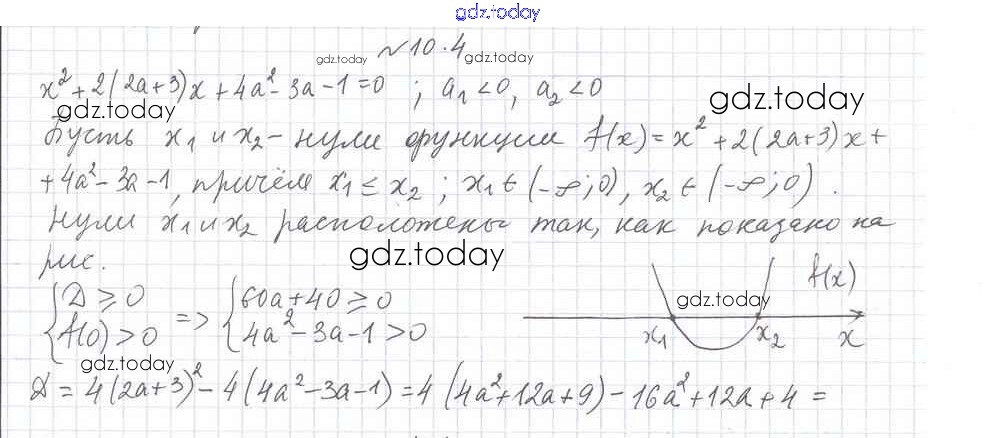 gdz.today
№10.4
gdz.today gdz.today
x² + 2(2a+3)x + 4a² - 3a - 1 = 0 ; a₁ < 0, a₂ < 0
gdz.today gdz.today
Пусть x₁ и x₂ - нули функции f(x) = x² + 2(2a+3)x +
+ 4a² - 3a - 1, причём x₁ ≤ x₂ ; x₁ ∈ (-∞; 0), x₂ ∈ (-∞; 0).
Нули x₁ и x₂ расположены так, как показано на
рис.
gdz.today
{ D ≥ 0 => { 60a + 40 ≥ 0
f(0) > 0 4a² - 3a - 1 > 0
f(x)
gdz.today
x₁ x₂ x
gdz.today
D = 4(2a+3)² - 4(4a² - 3a - 1) = 4(4a² + 12a + 9) - 16a² + 12a + 4 =